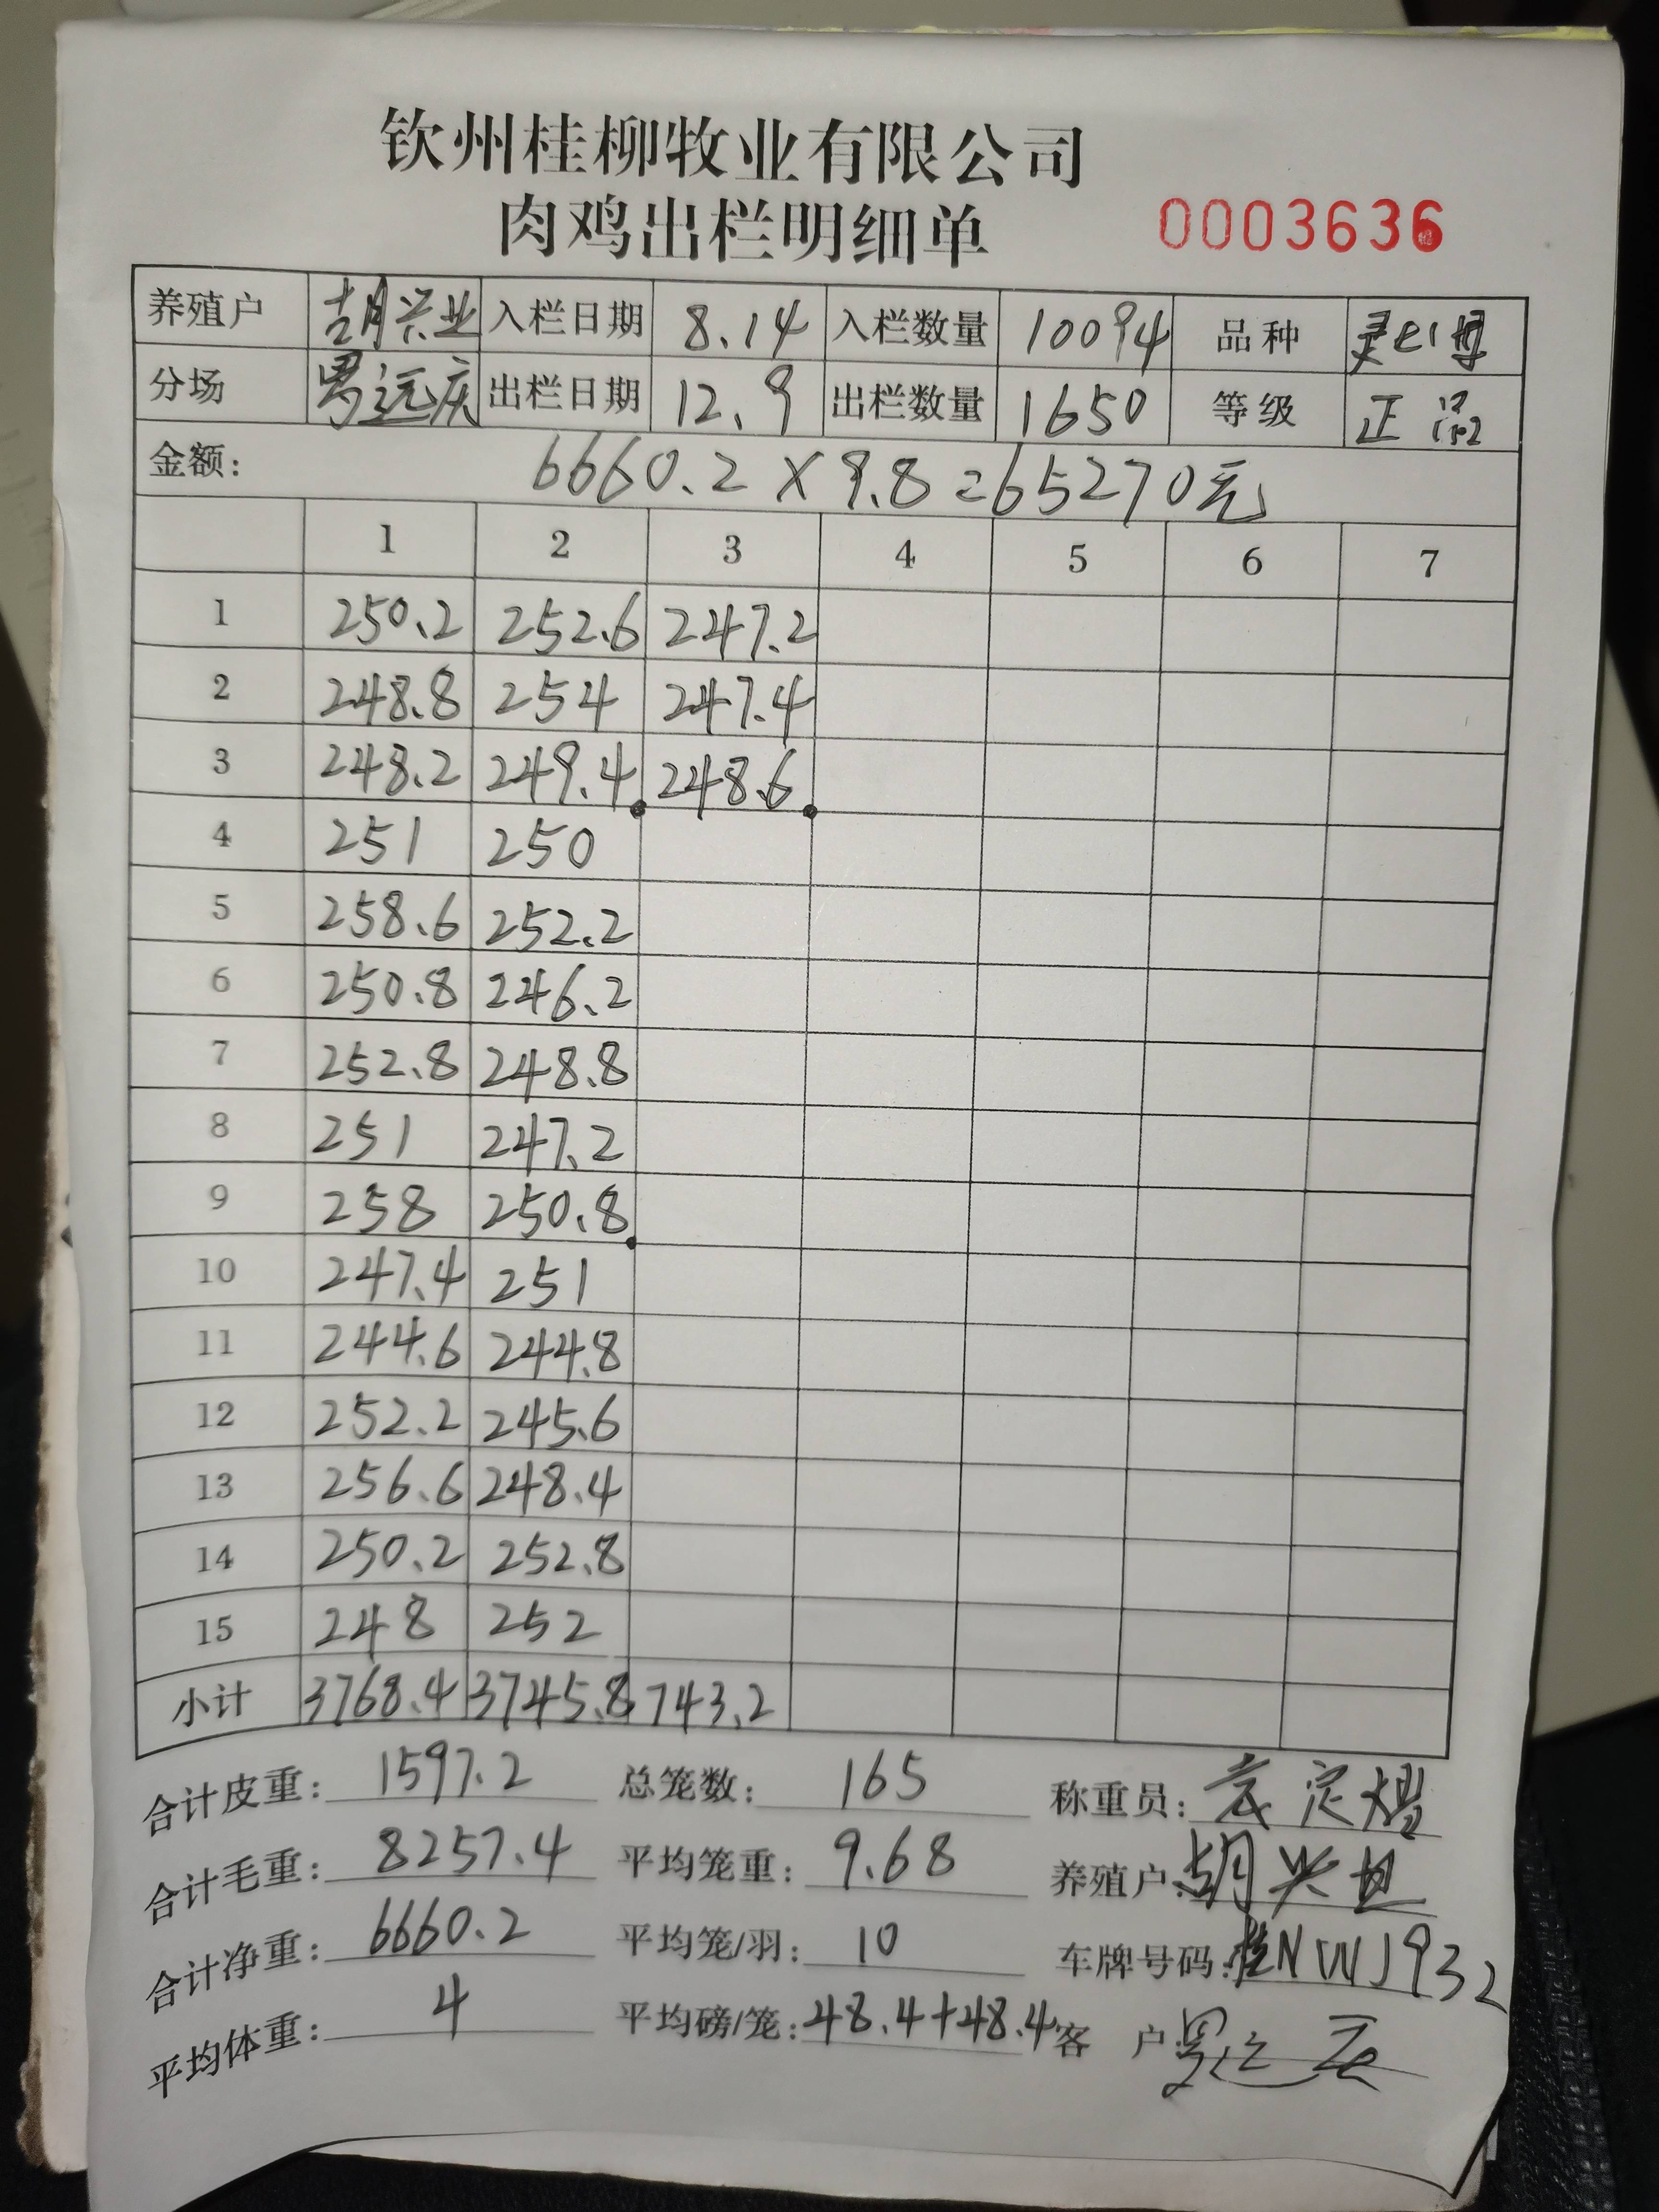 钦州桂柳牧业有限公司
肉鸡出栏明细单 0003636
养殖户 胡兴业 入栏日期 8.14 入栏数量 10094 品种
分场 罗远庆 出栏日期 12.9 出栏数量 1650 等级 正品
金额: 6660.2×9.8=65270元
1 2 3 4 5 6 7
1 250.2 252.6 247.2
2 248.8 254 247.4
3 248.2 249.4 248.6
4 251 250
5 258.6 252.2
6 250.8 246.2
7 252.8 248.8
8 251 247.2
9 258 250.8
10 247.4 251
11 244.6 244.8
12 252.2 245.6
13 256.6 248.4
14 250.2 252.8
15 248 252
小计 3768.4 3745.8 743.2
合计皮重: 1597.2 总笼数: 165 称重员:
合计毛重: 8257.4 平均笼重: 9.68 养殖户: 胡兴业
合计净重: 6660.2 平均笼/羽: 10 车牌号码: 桂NWJ932
平均体重: 4 平均磅/笼: 48.4+48.4 客户: